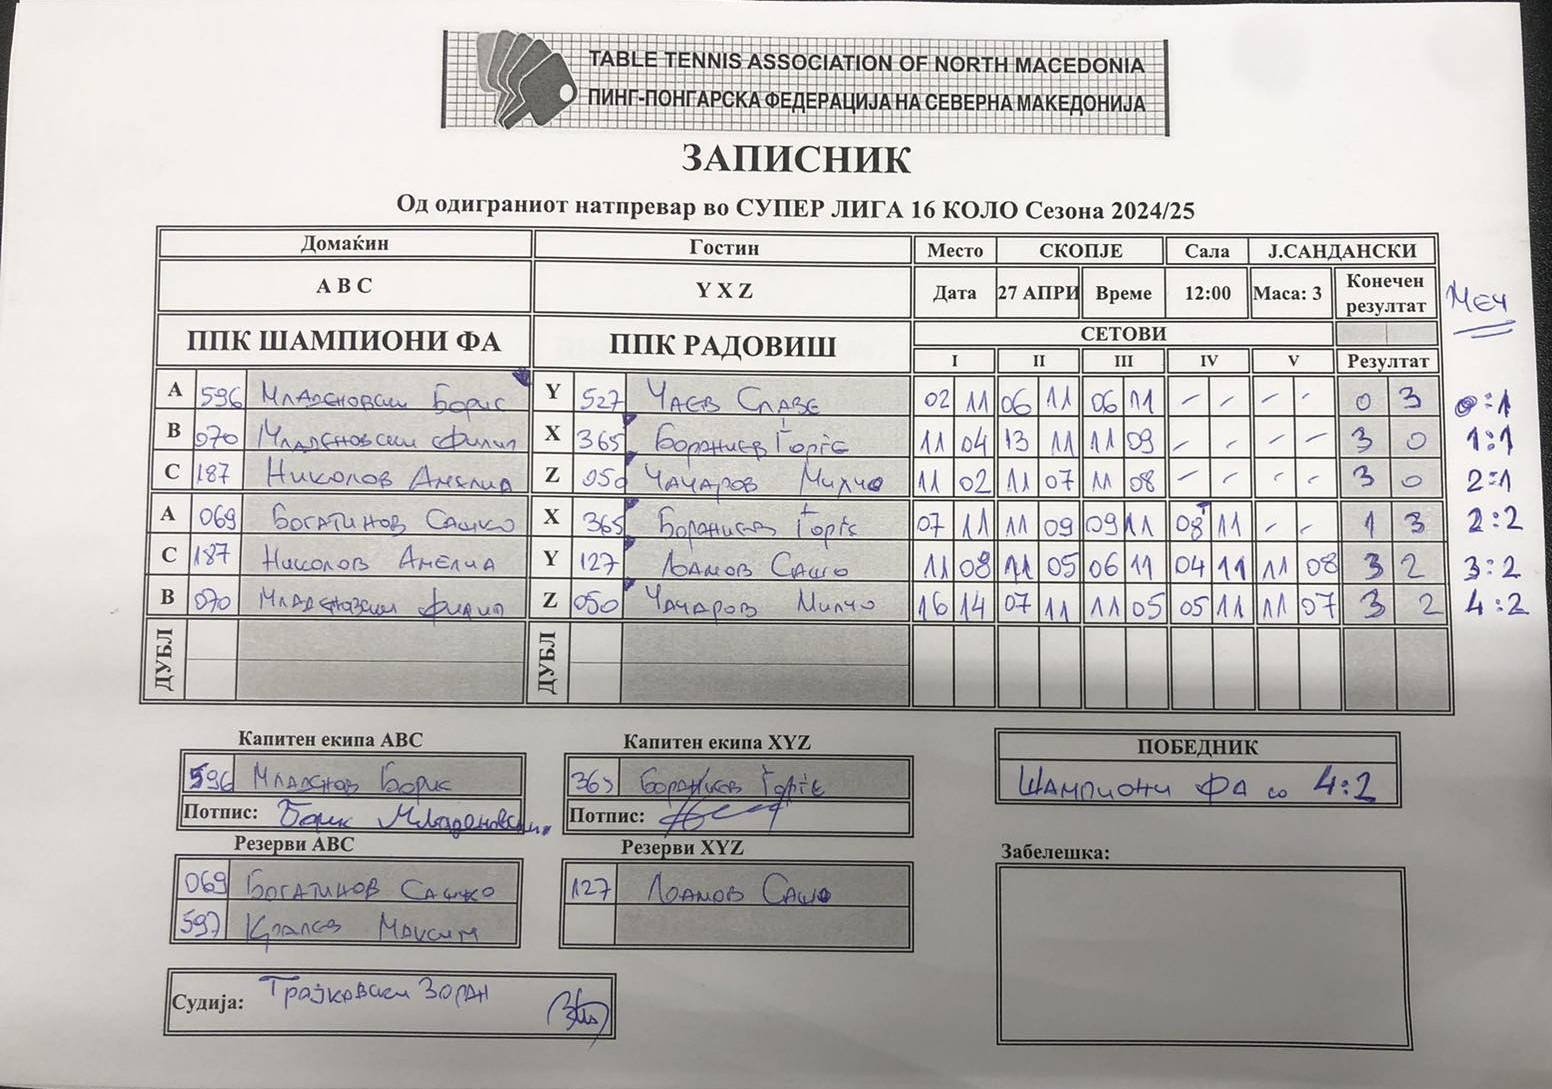 TABLE TENNIS ASSOCIATION OF NORTH MACEDONIA
ПИНГ-ПОНГАРСКА ФЕДЕРАЦИЈА НА СЕВЕРНА МАКЕДОНИЈА
ЗАПИСНИК
Од одиграниот натпревар во СУПЕР ЛИГА 16 КОЛО Сезона 2024/25
Домаќин Гостин Место СКОПЈЕ Сала Ј.САНДАНСКИ
A B C Y X Z Дата 27 АПРИ Време 12:00 Маса: 3 Конечен резултат Меч
ППК ШАМПИОНИ ФА ППК РАДОВИШ СЕТОВИ
I II III IV V Резултат
A 596 Младеновски Борис Y 527 Чаев Славе 02 11 06 11 06 11 - - - - 0 3 0:1
B 070 Младеновски Филип X 365 Бораниев Ѓорѓе 11 04 13 11 11 09 - - - - 3 0 1:1
C 187 Николов Амелиа Z 050 Чачаров Милчо 11 02 11 07 11 08 - - - - 3 0 2:1
A 069 Богатинов Сашко X 365 Бораниев Ѓорѓе 07 11 11 09 09 11 08 11 - - 1 3 2:2
C 187 Николов Амелиа Y 127 Сашо 11 08 11 05 06 11 04 11 11 08 3 2 3:2
B 070 Младеновски Филип Z 050 Чачаров Милчо 16 14 07 11 11 05 05 11 11 07 3 2 4:2
ДУБЛ ДУБЛ
Капитен екипа ABC Капитен екипа XYZ ПОБЕДНИК
596 Младенов Борис 365 Бораниев Ѓорѓе Шампиони ФА со 4:2
Потпис: Борис Младеновски Потпис:
Резерви ABC Резерви XYZ Забелешка:
069 Богатинов Сашко 127 Сашо
597 Кралев Максим
Судија: Трајковски Зоран